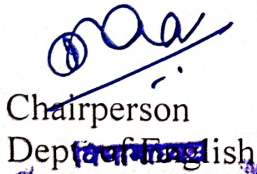 Chairperson
Dept. of English